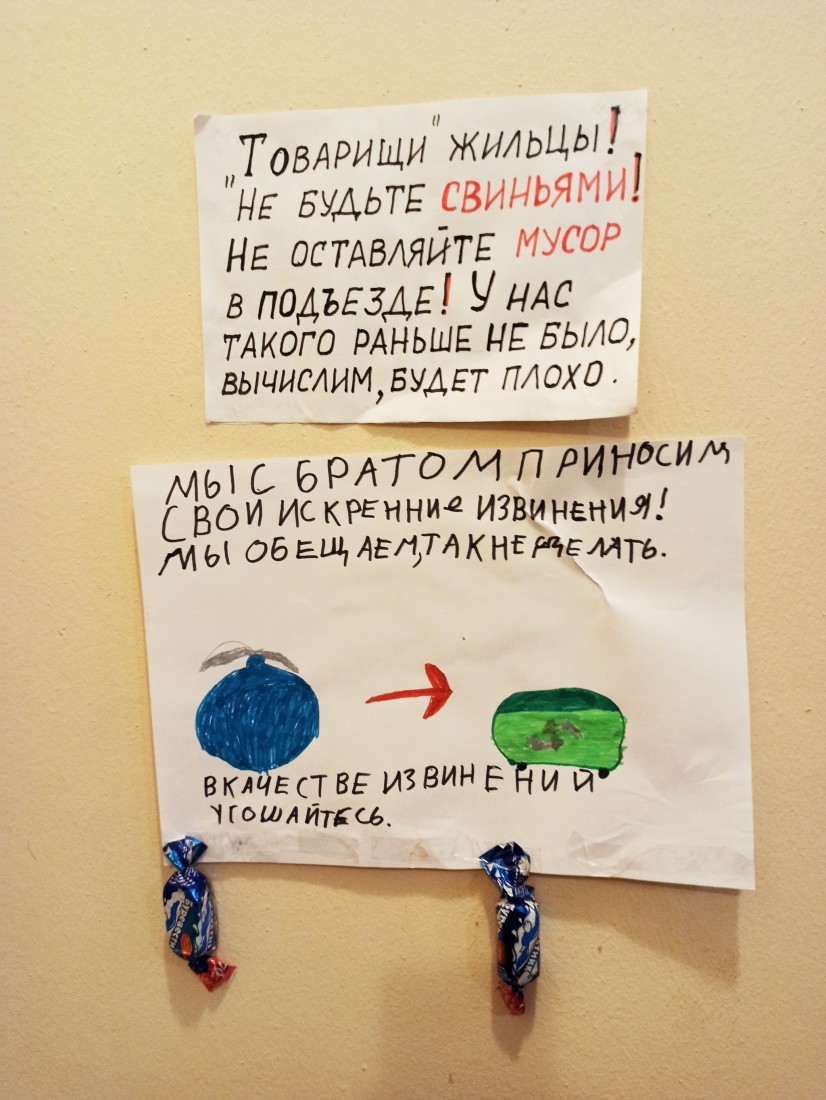 „Товарищи" жильцы!
"Не будьте свиньями!
Не оставляйте мусор
в подъезде! У нас
такого раньше не было,
вычислим, будет плохо.
МЫ С БРАТОМ ПРИНОСИМ
СВОИ ИСКРЕННИе ИЗВИНЕНИЯ!
МЫ ОБЕЩАЕМ, ТАК НЕ ДЕЛАТЬ.
В КАЧЕСТВЕ ИЗВИНЕНИЙ
УГОШАЙТЕСЬ.